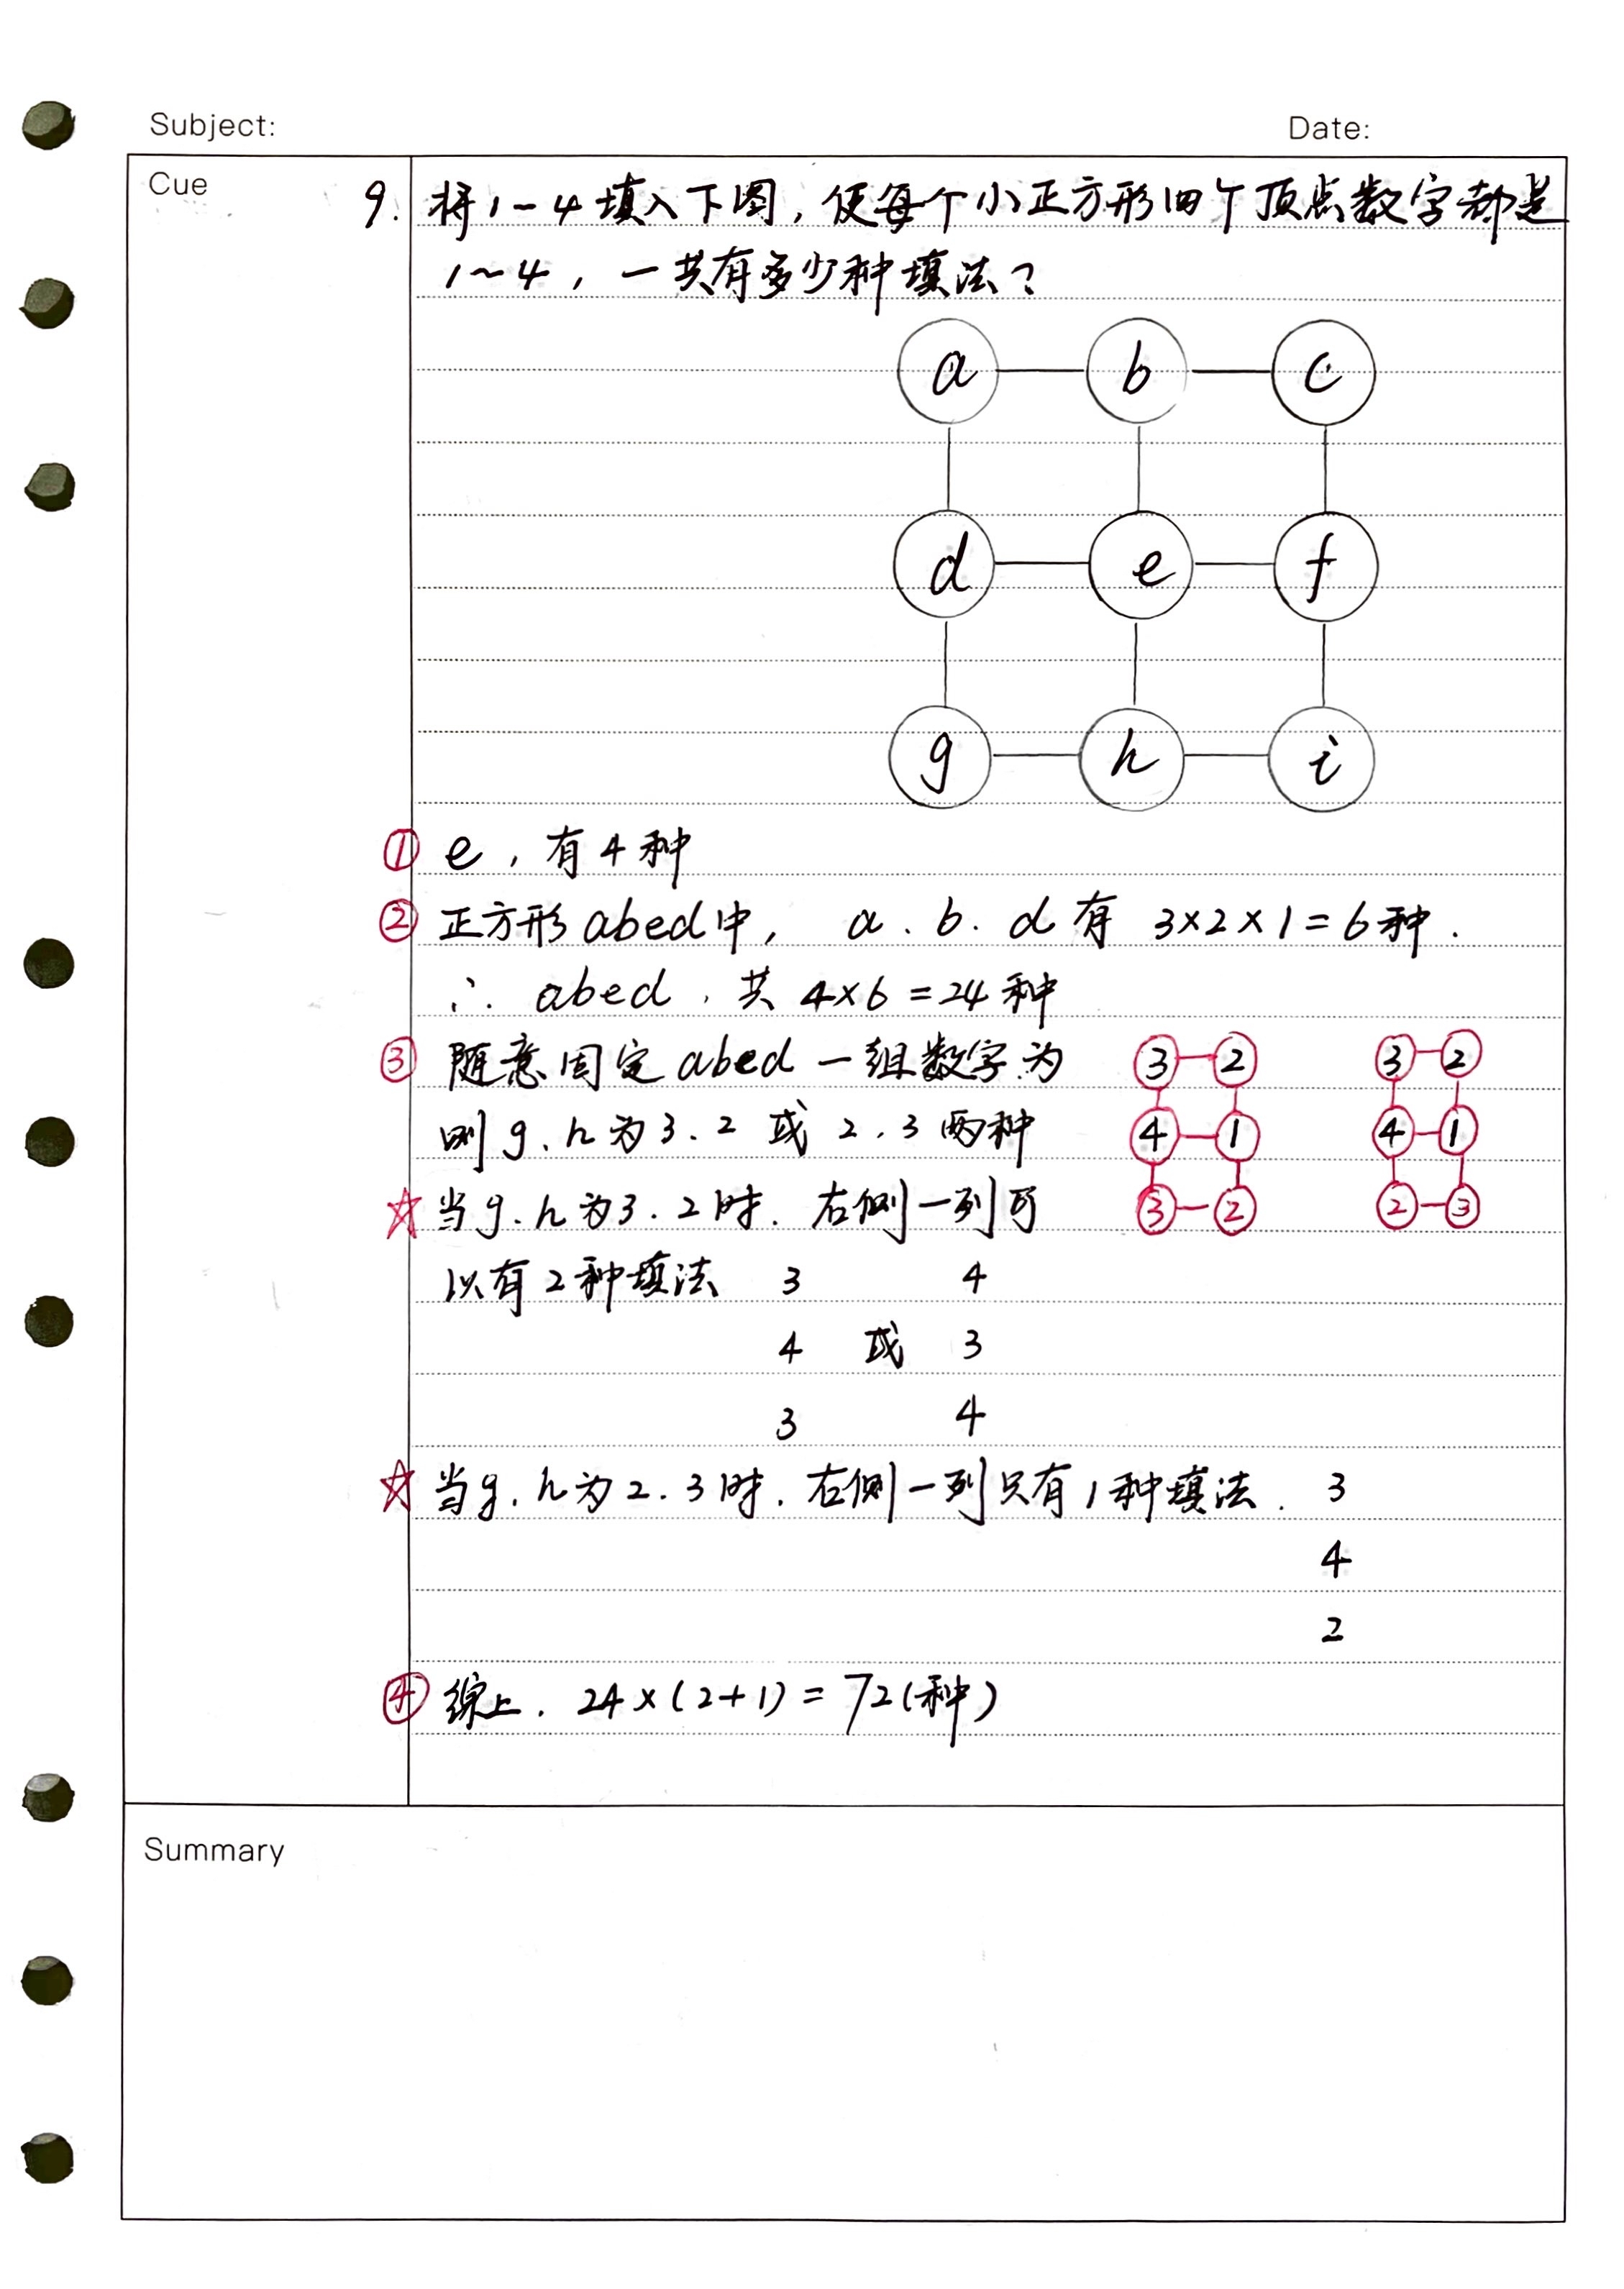 Subject:
Date:
Cue
9. 将1~4填入下图,使每个小正方形四个顶点数字都是
1~4,一共有多少种填法?
a b c
d e f
g h i
① e,有4种
② 正方形abed中, a.b.d有 3×2×1=6种.
∴ abed,共 4×6=24种
③ 随意固定abed一组数字为
3 2 3 2
则g.h为3.2 或 2.3两种
4 1 4 1
☆当g.h为3.2时.右侧一列可
3 2 2 3
以有2种填法 3 4
4 或 3
3 4
☆当g.h为2.3时.右侧一列只有1种填法. 3
4
2
④ 综上. 24×(2+1)=72(种)
Summary